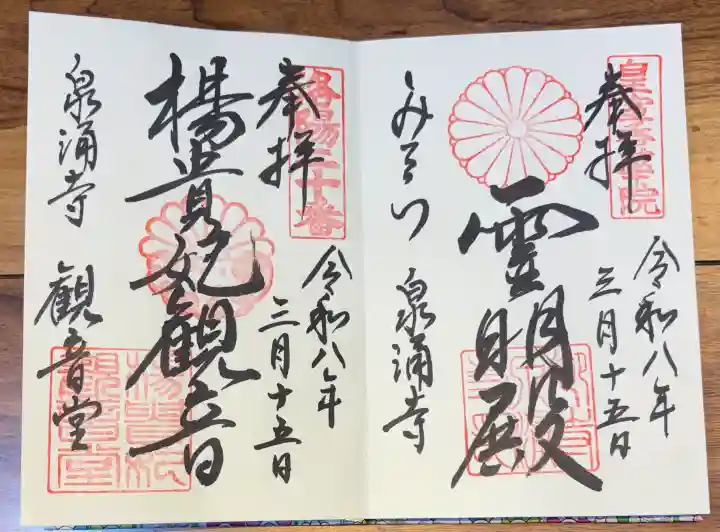 皇室香華院
奉拝
令和八年
三月十五日
霊明殿
みてら
泉涌寺
洛陽二十番
奉拝
令和八年
三月十五日
楊貴妃観音
泉涌寺 観音堂
楊貴妃
観音堂